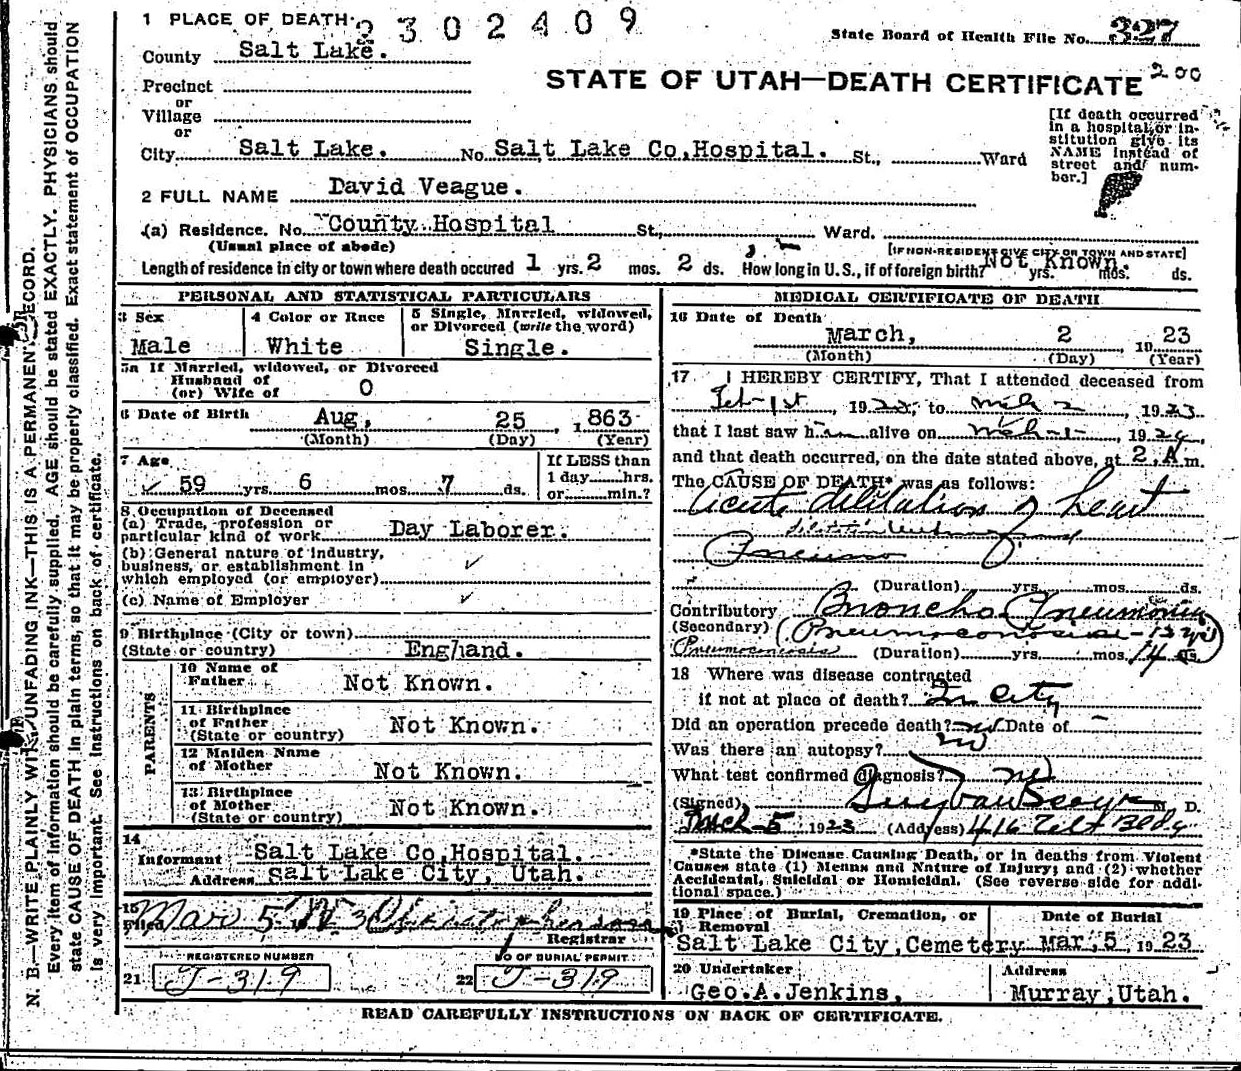 1 PLACE OF DEATH. 2302409
State Board of Health File No. 327
County Salt Lake.
STATE OF UTAH—DEATH CERTIFICATE 200
Precinct
or
Village
or
[If death occurred in a hospital or institution give its NAME instead of street and number.]
City Salt Lake. No. Salt Lake Co,Hospital. St., Ward
2 FULL NAME David Veague.
(a) Residence. No. County Hospital St., Ward.
(Usual place of abode) [IF NON-RESIDENT GIVE CITY OR TOWN AND STATE]
Length of residence in city or town where death occured 1 yrs. 2 mos. 2 ds. How long in U.S., if of foreign birth? Not Known. yrs. mos. ds.
PERSONAL AND STATISTICAL PARTICULARS
3 Sex Male
4 Color or Race White
5 Single, Married, widowed, or Divorced (write the word) Single.
5a If Married, widowed, or Divorced
Husband of
(or) Wife of O
6 Date of Birth Aug, 25, 1863
(Month) (Day) (Year)
7 Age 59 yrs. 6 mos. 7 ds.
If LESS than 1 day hrs. or min.?
8 Occupation of Deceased
(a) Trade, profession or particular kind of work Day Laborer.
(b) General nature of industry, business, or establishment in which employed (or employer)
(c) Name of Employer
9 Birthplace (City or town)
(State or country) England.
PARENTS
10 Name of Father Not Known.
11 Birthplace of Father (State or country) Not Known.
12 Maiden Name of Mother Not Known.
13 Birthplace of Mother (State or country) Not Known.
14
Informant Salt Lake Co,Hospital.
Address Salt Lake City, Utah.
15
Filed Mar 5
Registrar
REGISTERED NUMBER
21 J-319
NO OF BURIAL PERMIT
22 J-319
MEDICAL CERTIFICATE OF DEATH
16 Date of Death
March, 2 1923
(Month) (Day) (Year)
17 I HEREBY CERTIFY, That I attended deceased from
Feb-1st, 1923, to Mch 2, 1923
that I last saw him alive on Mch-1-, 192
and that death occurred, on the date stated above, at 2.A m.
The CAUSE OF DEATH* was as follows:
Acute dilitation of heart
(Duration) yrs. mos. ds.
Contributory Broncho Pneumonia
(Secondary) (Pneumoconosis
Pneumoconiosis (Duration) yrs. mos. 14 ds.
18 Where was disease contracted
if not at place of death? In City
Did an operation precede death? no Date of -
Was there an autopsy? no
What test confirmed diagnosis? no
(Signed) M. D.
Mch-5 1923 (Address) 416 Bldg
*State the Disease Causing Death, or in deaths from Violent Causes state (1) Means and Nature of Injury; and (2) whether Accidental, Suicidal or Homicidal. (See reverse side for additional space.)
19 Place of Burial, Cremation, or Removal Date of Burial
Salt Lake City,Cemetery Mar,5, 1923
20 Undertaker Address
Geo.A.Jenkins, Murray,Utah.
READ CAREFULLY INSTRUCTIONS ON BACK OF CERTIFICATE.
N. B.—WRITE PLAINLY WITH UNFADING INK—THIS IS A PERMANENT RECORD.
Every item of information should be carefully supplied. AGE should be stated EXACTLY. PHYSICIANS should
state CAUSE OF DEATH in plain terms, so that it may be properly classified. Exact statement of OCCUPATION
is very important. See instructions on back of certificate.